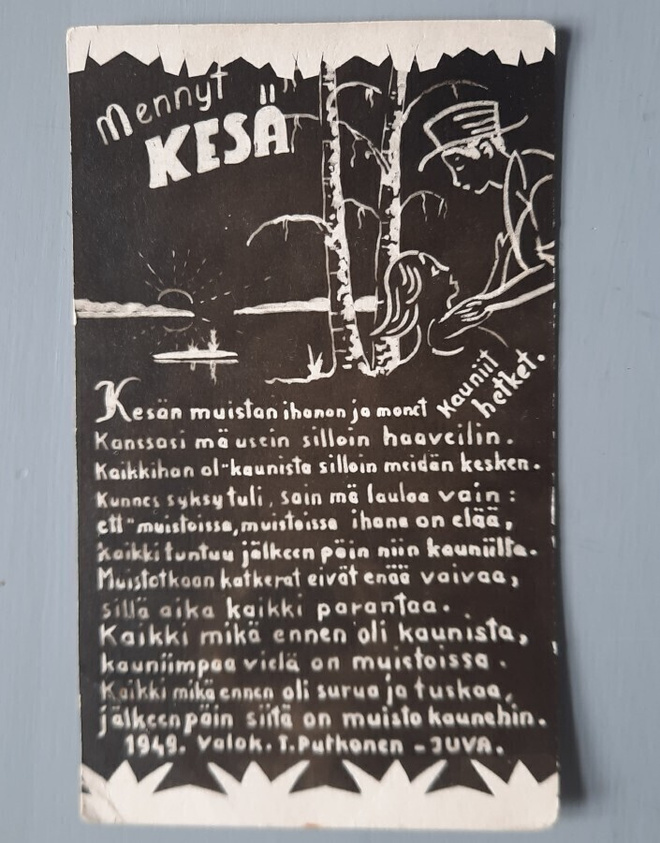 Mennyt
KESÄ
Kesän muistan ihanan ja monet kauniit
hetket.
Kanssasi mä usein silloin haaveilin.
Kaikkihan ol" kaunista silloin meidän kesken.
Kunnes syksy tuli, sain mä laulaa vain:
ett" muistoissa, muistoissa ihana on elää,
kaikki tuntuu jälkeen päin niin kauniilta.
Muistotkaan katkerat eivät enää vaivaa,
sillä aika kaikki parantaa.
Kaikki mikä ennen oli kaunista,
kauniimpaa vielä on muistoissa.
Kaikki mikä ennen oli surua ja tuskaa,
jälkeenpäin siitä on muisto kaunehin.
1949. Valok. T. Putkonen - JUVA.